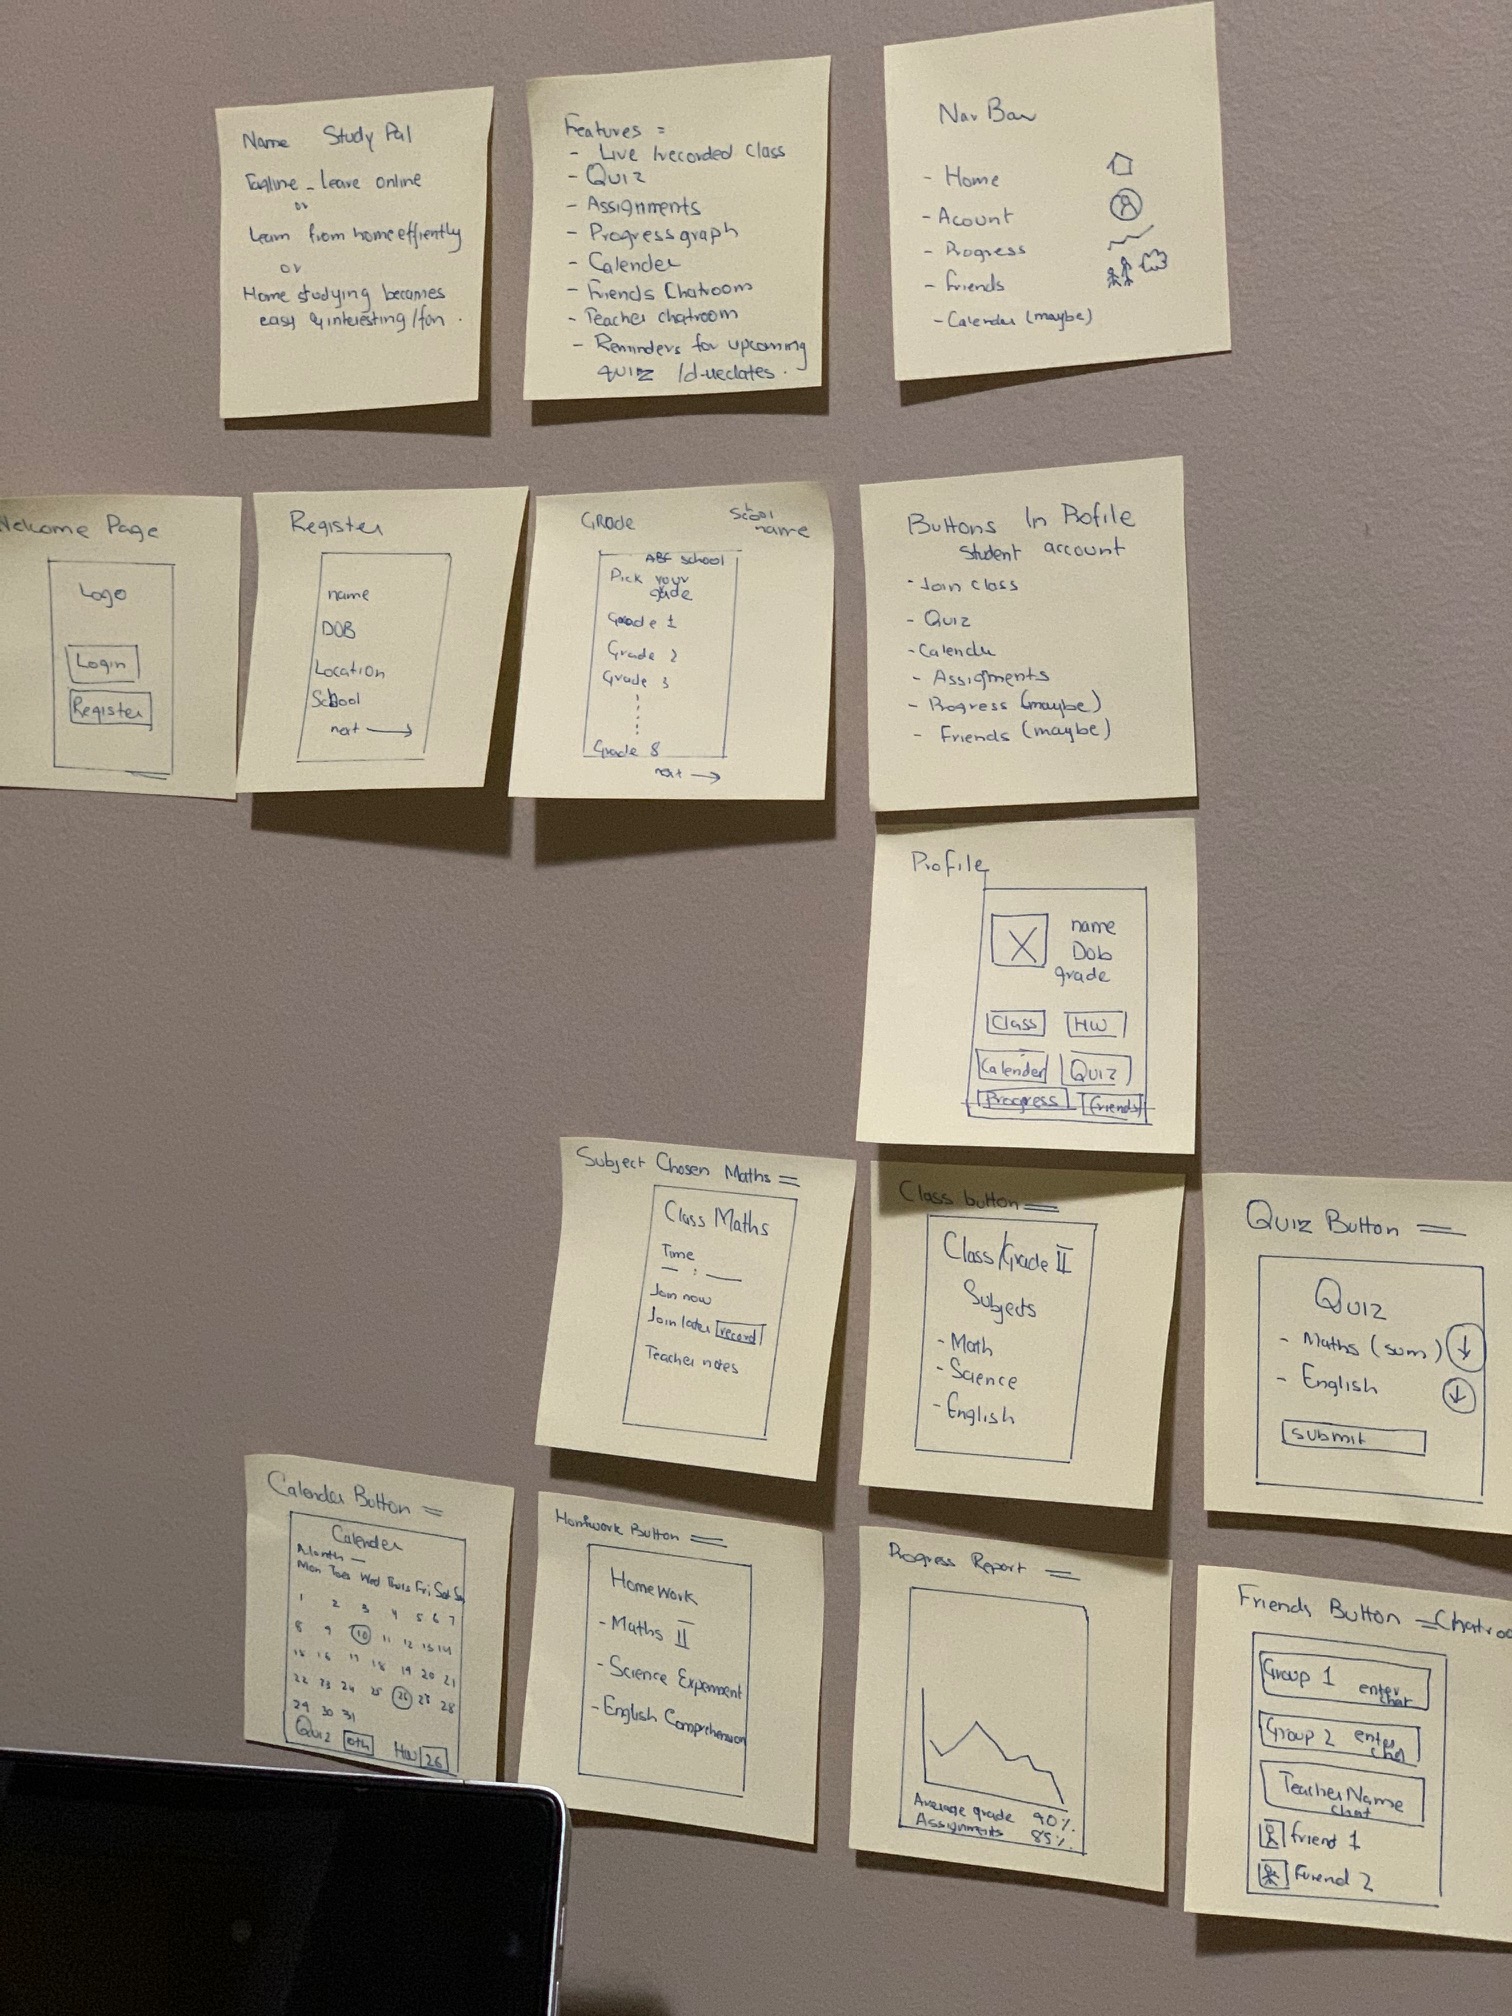 Name Study Pal
Tagline - leave online
or
Learn from home effiently
or
Home studying becomes
easy & interesting/fun.
Features =
- Live /recorded class
- Quiz
- Assignments
- Progress graph
- Calender
- Friends Chatroom
- Teacher chatroom
- Reminders for upcoming
quiz /d-uedates.
Nav Bar
- Home
- Acount
- Progress
- Friends
- Calender (maybe)
Welcome Page
Logo
Login
Register
Register
name
DOB
Location
School
next →
Grade
School
name
ABC school
Pick your
grade
Grade 1
Grade 2
Grade 3
Grade 8
next →
Buttons In Profile
Student account
- Join class
- Quiz
- Calender
- Assigments
- Progress (maybe)
- Friends (maybe)
Profile
name
Dob
grade
Class HW
Calender Quiz
Progress Friends
Subject Chosen Maths =
Class Maths
Time
__ : __
Join now
Join later record
Teacher notes
Class button =
Class/Grade II
Subjects
- Math
- Science
- English
Quiz Button =
Quiz
- Maths (sum) ↓
- English ↓
submit
Calender Button =
Calender
Month -
Mon Tues Wed Thurs Fri Sat Su
1 2 3 4 5 6 7
8 9 10 11 12 13 14
15 16 17 18 19 20 21
22 23 24 25 26 28
29 30 31
Quiz 10th HW 26
Homework Button =
Homework
- Maths II
- Science Experiment
- English Comprehension
Progress Report =
Average grade 90%
Assignments 85%
Friends Button = Chatroo
Group 1 enter
chat
Group 2 enter
chat
Teacher Name
chat
friend 1
Friend 2